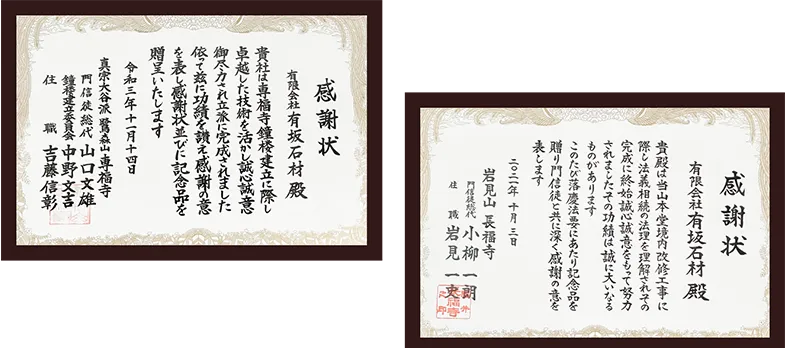 感謝状
有限会社 有坂石材 殿
貴社は専福寺鐘楼建立に際し
卓越した技術を活かし誠心誠意
御尽力され立派に完成されました
依って茲に功績を讃え感謝の意
を表し感謝状並びに記念品を
贈呈いたします
令和三年十一月十四日
真宗大谷派 鷲森山 専福寺
門信徒総代 山口文雄
鐘楼建立委員会 中野文吉
住職 吉藤信彰
感謝状
有限会社 有坂石材 殿
貴殿は当山本堂境内改修工事に
際し法義相続の法理を理解されその
完成に終始誠心誠意をもって努力
されましたその功績は誠に大いなる
ものがあります
このたび落慶法要にあたり記念品を
贈り門信徒と共に深く感謝の意を
表します
岩見山 長福寺
門信徒総代 小柳一朗
住職 岩見一史